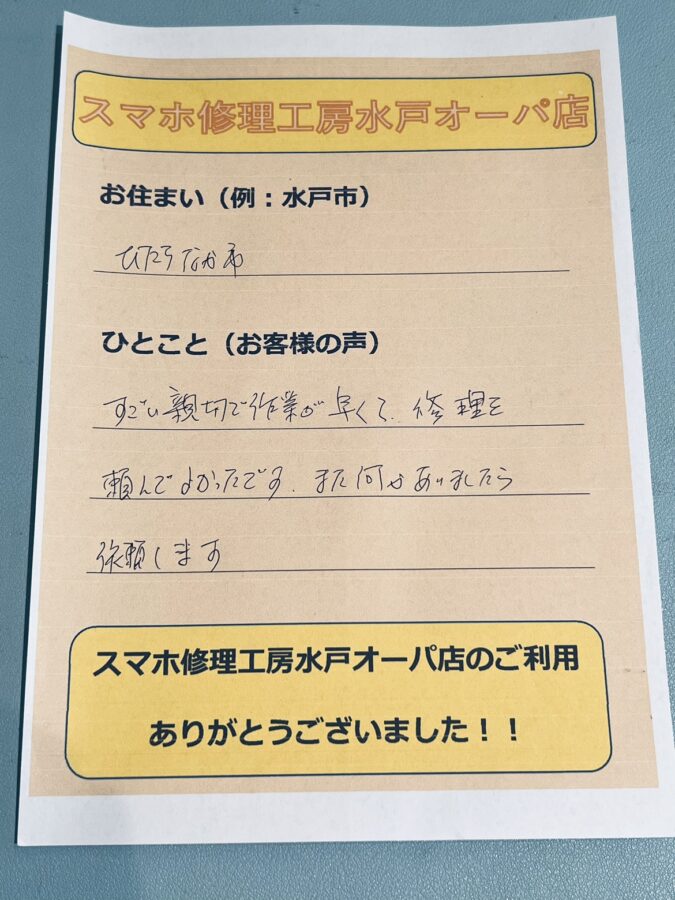 スマホ修理工房水戸オーパ店
お住まい（例：水戸市）
ひたちなか市
ひとこと（お客様の声）
すごい親切で作業が早くて、修理を
頼んでよかったです、また何かありましたら
依頼します
スマホ修理工房水戸オーパ店のご利用
ありがとうございました！！